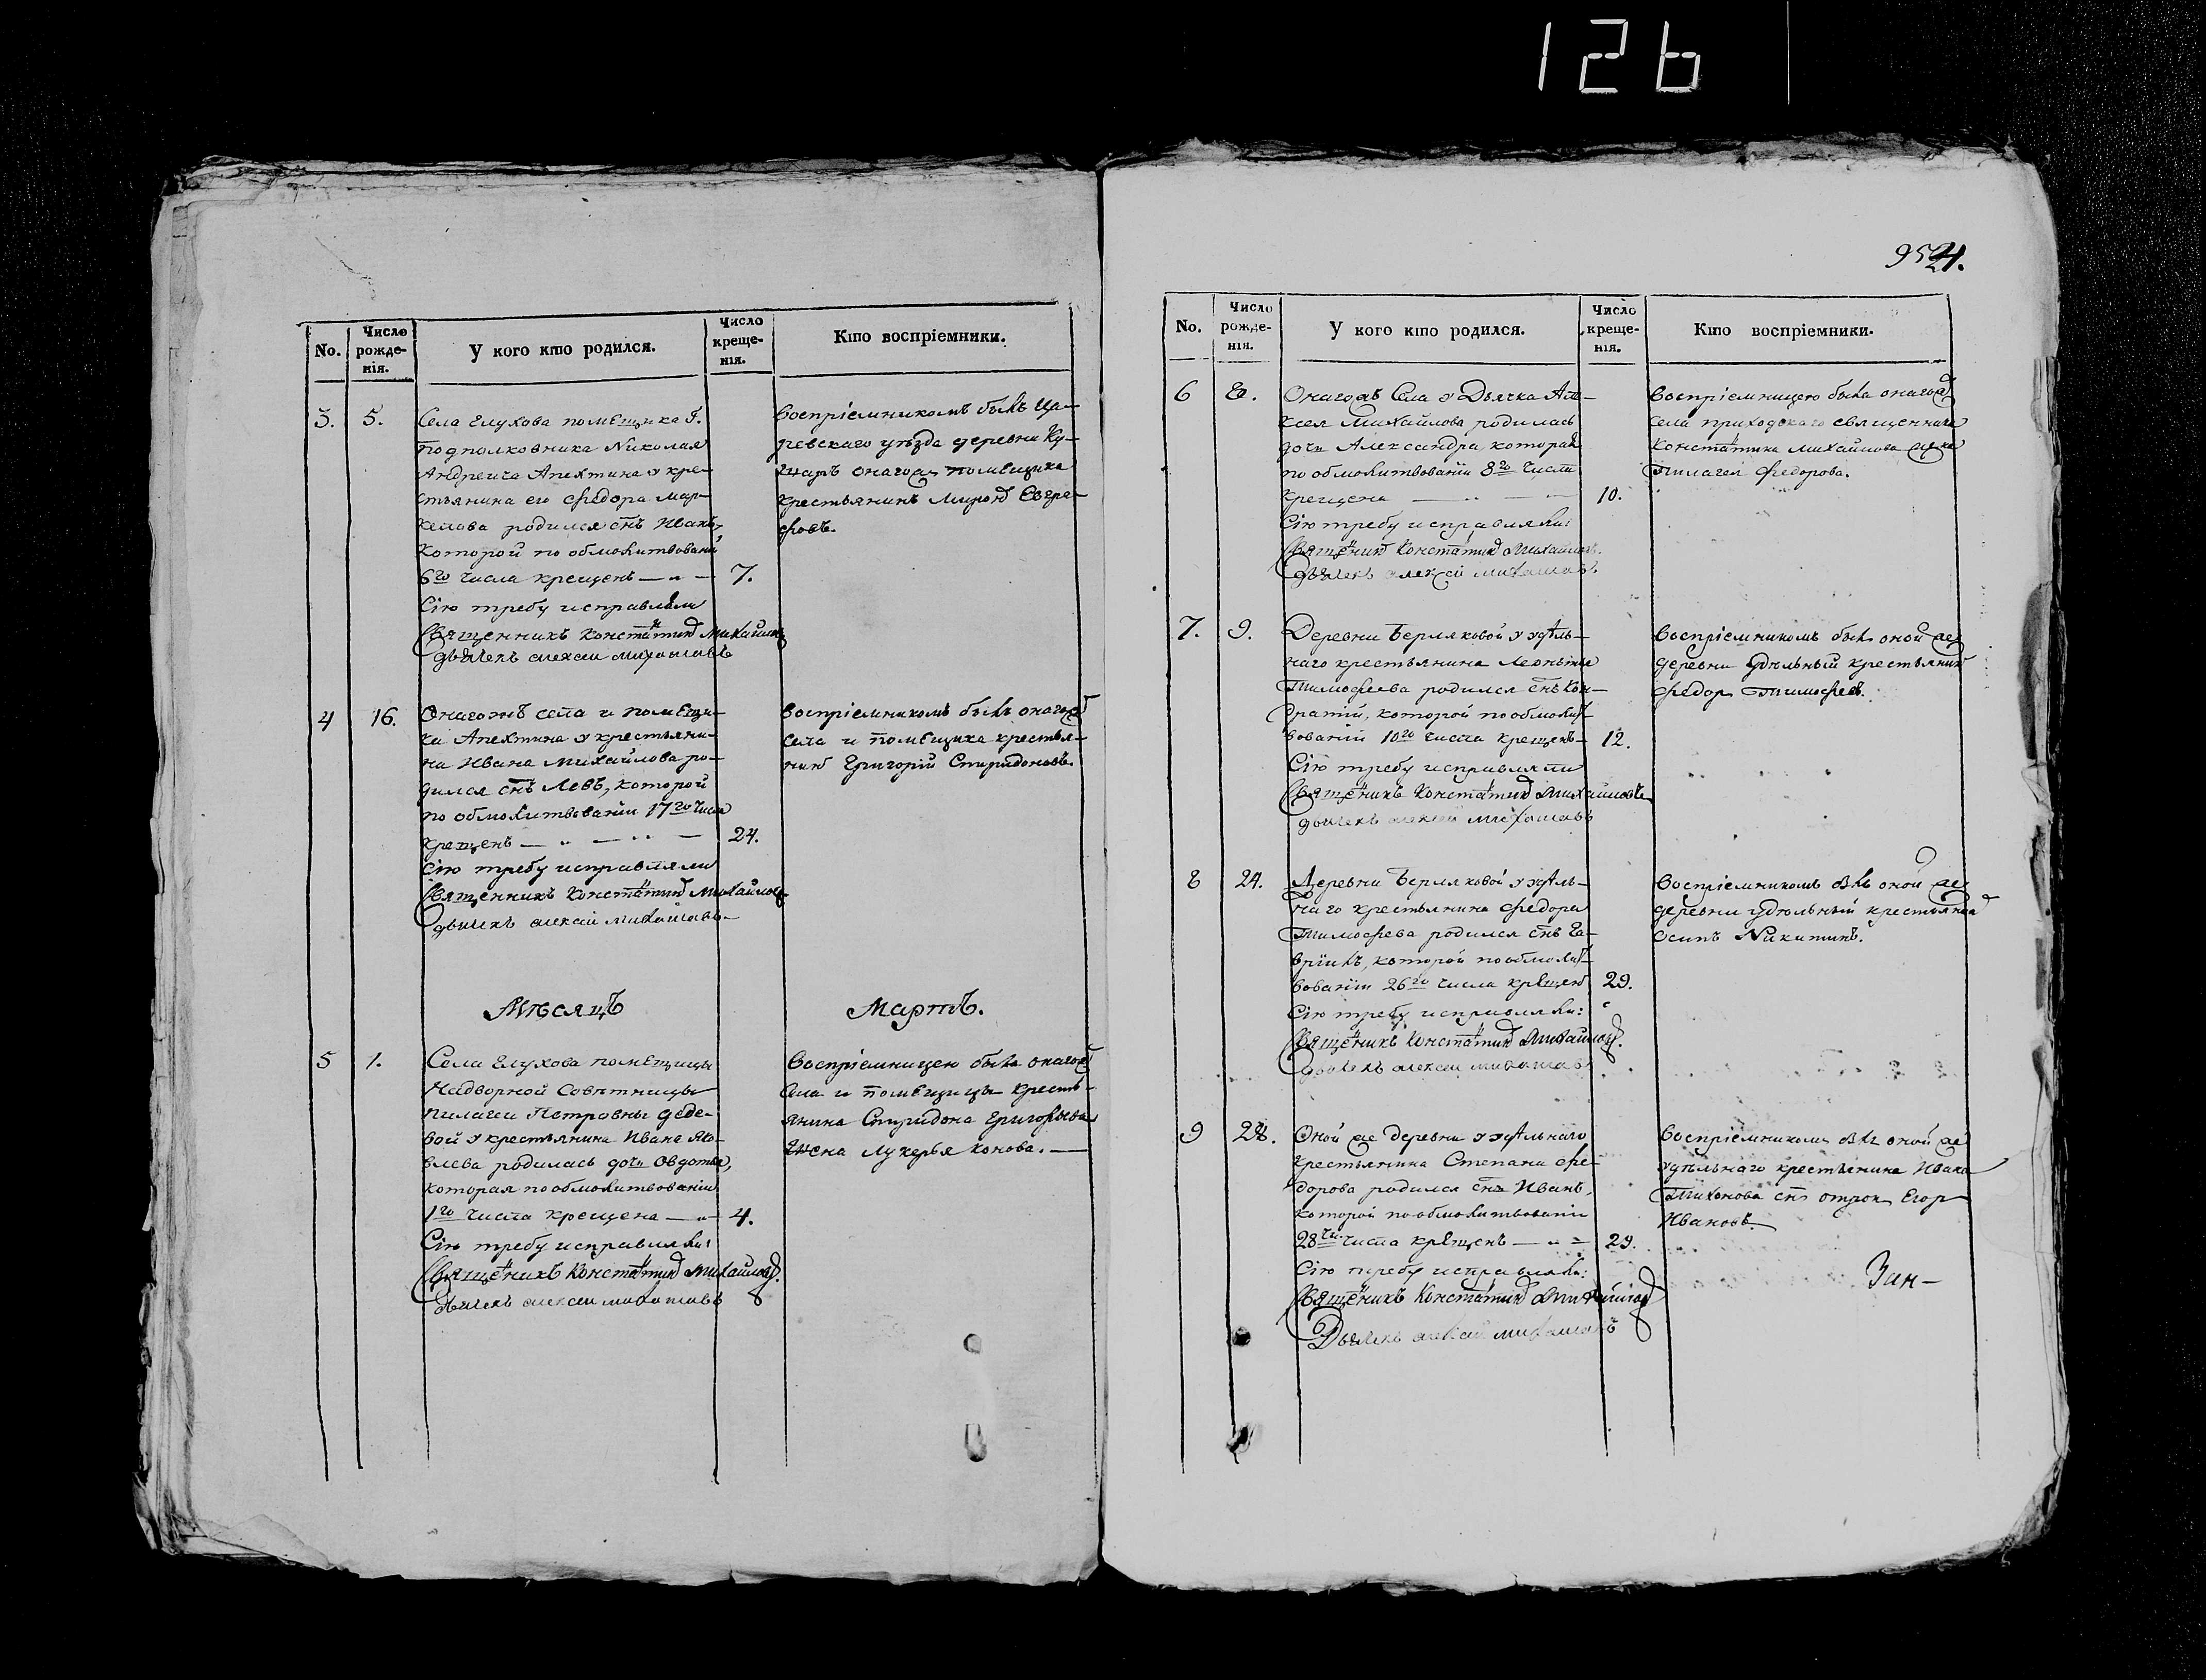 126
No.
Число рожде-нія.
У кого кто родился.
Число креще-нія.
Кто воспріемники.
3.
5.
Села Глухова помѣщика Г.
подполковника Николая
Андреича Апихтина у кре-
стьянина его Федора Мар-
келова родился снъ Иванъ,
которой по обмолитвованіи
6го числа крещенъ — „ — 7.
Сію требу исправляли
Священникъ Константинъ Михайловъ
дьячекъ алексеи михаиловъ
Воспріемникомъ былъ Ца-
ревскаго уѣзда деревни Ку-
онагожъ помѣщика
крестьянинъ Миронъ Евгра-
фовъ.
4
16.
Онагожъ села и помѣщи-
ка Апехтина у крестьяни-
на Ивана Михайлова ро-
дился снъ Левъ, которой
по обмолитвованіи 17го числа
крещенъ — „ — „ — 24.
Сію требу исправляли
Священникъ Константинъ Михайловъ
дьячекъ алексій михаиловъ
Воспріемникомъ былъ онагожъ
села и помѣщика крестья-
нинъ Григорій Спиридоновъ.
Мѣсяцъ
Мартъ.
5
1.
Села Глухова помѣщицы
Надворной Совѣтницы
Пилагеи Петровны Деде-
вой у крестьянина Ивана Яко-
влева родилась дочь Овдотья,
которая по обмолитвованіи
1го числа крещена — „ — 4.
Сію требу исправляли:
Священникъ Константинъ Михайловъ.
дьячекъ алексеи михаиловъ
Воспріемницею была онагожъ
села и помѣщицы кресть-
янина Спиридона Григорьева
жена Лукерья Конова. —
No.
Число рожде-нія.
У кого кто родился.
Число креще-нія.
Кто воспріемники.
6
8.
Онагожъ Села у Дьячка Але-
ксея Михайлова родилась
дочь Александра, которая
по обмолитвованіи 8го числа
крещена — „ — 10.
Сію требу исправляли:
Священникъ Константинъ Михайловъ.
дьячекъ алексій михаиловъ
Воспріемницею была онагожъ
села приходскаго священника
Константина Михайлова жена
Пилагея Федорова.
7.
9.
Деревни Берляковой у удѣль-
наго крестьянина Леонтья
Тимофеева родился снъ Кон-
дратій, которой по обмолит-
вованіи 10го числа крещенъ — 12.
Сію требу исправляли
Священникъ Константинъ Михайловъ
дьячекъ алексій михаиловъ
Воспріемникомъ былъ оной же
деревни удѣльный крестьянинъ
Федоръ Тимофеевъ.
8
24.
Деревни Берляковой у удѣль-
наго крестьянина Федора
Тимофеева родился снъ Га-
вріилъ, которой по обмолит-
вованіи 26го числа крещенъ 29.
Сію требу исправляли:
Священникъ Константинъ Михайловъ.
дьячекъ алексеи михаиловъ
Воспріемникомъ былъ оной же
деревни удѣльный крестьянинъ
Осипъ Никитинъ.
9
28.
Оной же деревни у удѣльнаго
крестьянина Степана Фе-
дорова родился снъ Иванъ,
которой по обмолитвованіи
28 числа крещенъ — „ — 29.
Сію требу исправляли:
Священникъ Константинъ Михайловъ
Дьячекъ алексій михаиловъ
Воспріемникомъ былъ оной же
удѣльнаго крестьянина Ивана
Тихонова снъ отрокъ Егоръ
Ивановъ.